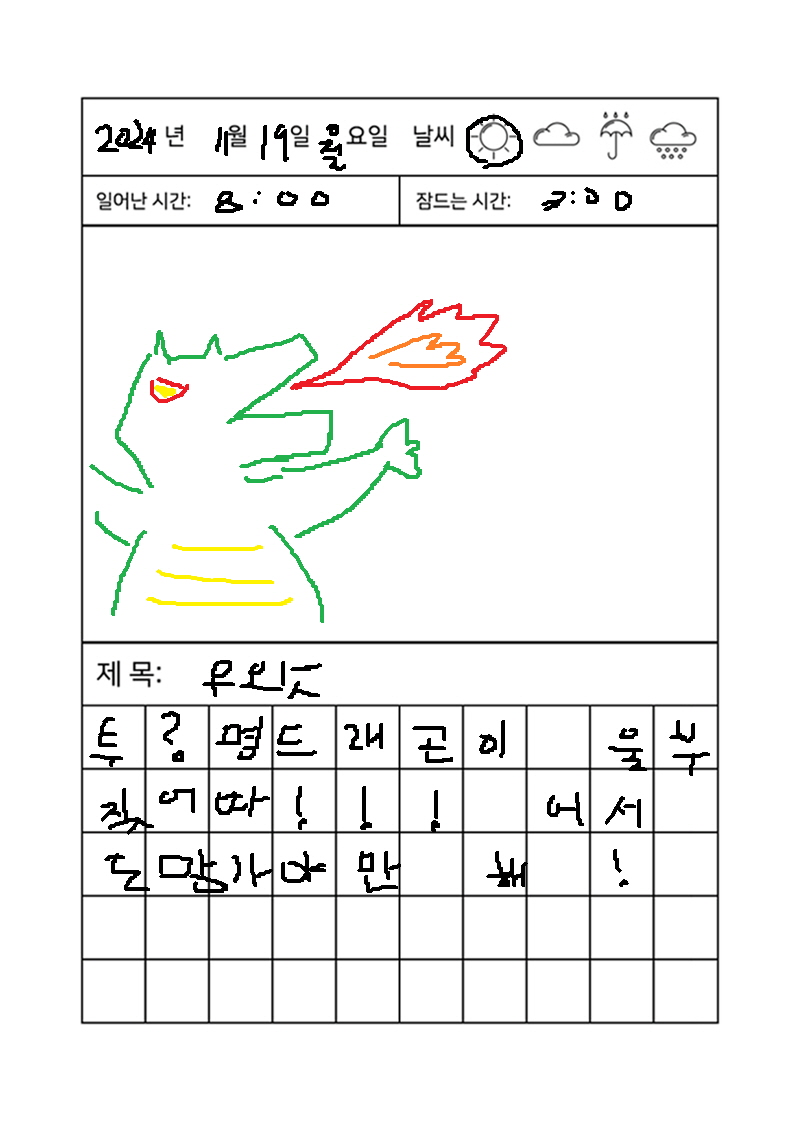 2024년 11월 19일 월요일 날씨
일어난 시간: 8:00 잠드는 시간: 7:00
제 목:
투?명드래곤이 울부
짖어따!!! 어서
도망가야만 해!